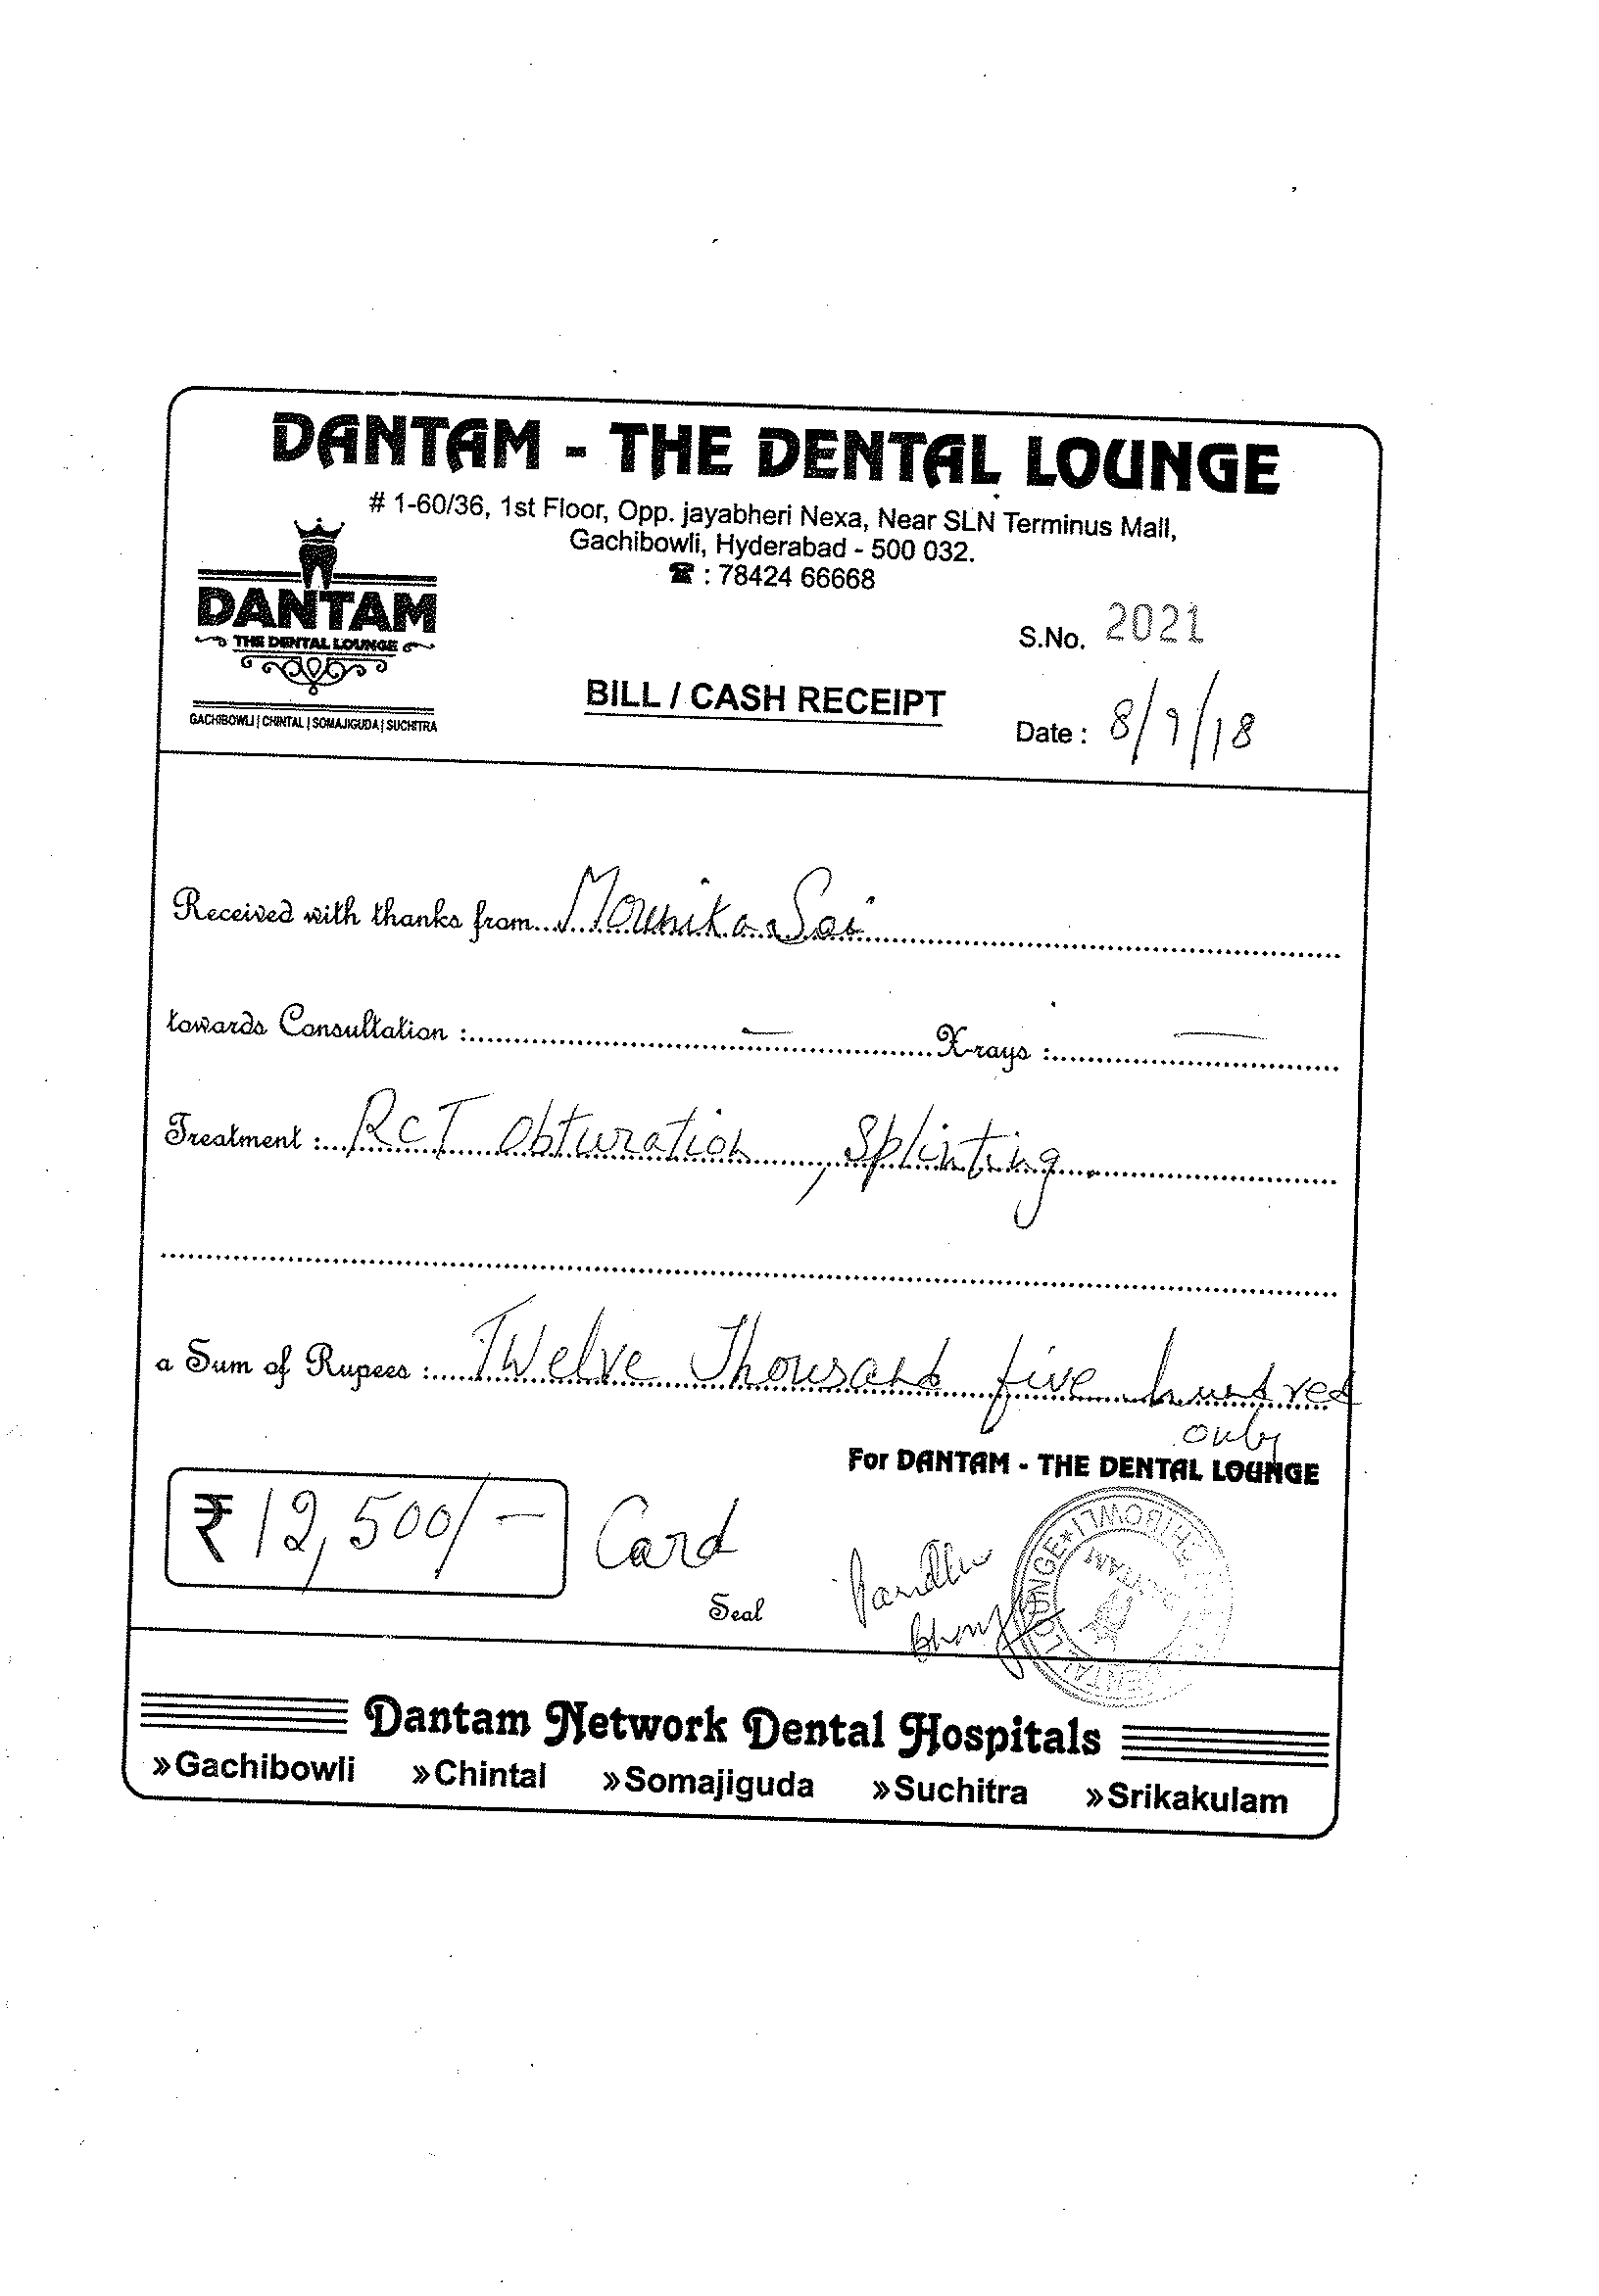 DANTAM - THE DENTAL LOUNGE
# 1-60/36, 1st Floor, Opp. jayabheri Nexa, Near SLN Terminus Mall,
Gachibowli, Hyderabad - 500 032.
☎ : 78424 66668
DANTAM
THE DENTAL LOUNGE
GACHIBOWLI | CHINTAL | SOMAJIGUDA | SUCHITRA
S.No. 2021
BILL / CASH RECEIPT
Date : 8/9/18
Received with thanks from Mounika Sai
towards Consultation : — X-rays : —
Treatment : RCT Obturation, Splinting.
a Sum of Rupees : Twelve Thousand five hundred
only
For DANTAM - THE DENTAL LOUNGE
₹ 12,500/- Card
Seal
Dantam Network Dental Hospitals
»Gachibowli »Chintal »Somajiguda »Suchitra »Srikakulam